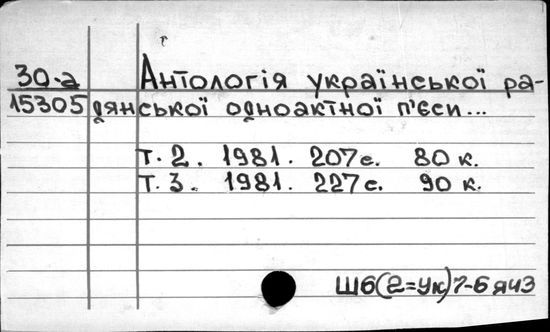 30-а Антологія української ра-
15305 дянської одноактної п'єси...
т. 2. 1981. 207с. 80 к.
т. 3. 1981. 227с. 90 к.
Ш6(2=Ук)7-6 я43